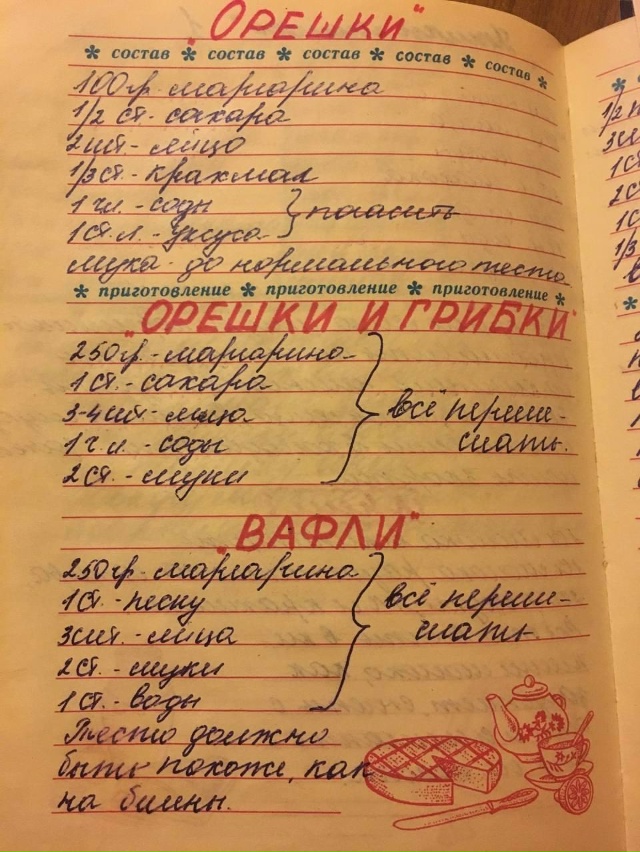 "ОРЕШКИ"
* состав * состав * состав * состав * состав *
100гр. маргарина
1/2 ст. - сахара
2 шт. - яйцо
1/3 ст. - крахмал
1 ч.л. - соды } погасить
1 ст. л. - уксуса
мука - до нормального теста
* приготовление * приготовление * приготовление *
"ОРЕШКИ И ГРИБКИ"
250гр. - маргарина
1 ст. - сахара
3-4 шт. - яйца } всё переме-
1 ч. л. - соды шать.
2 ст. - муки
"ВАФЛИ"
250гр. маргарина
1 ст. - песку } всё переме-
3 шт. - яйца шать
2 ст. - муки
1 ст. - воды
Тесто должно
быть похоже, как
на блины.